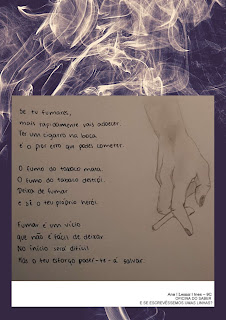 Se tu fumares,
mais rapidamente vais adoecer.
Ter um cigarro na boca
é o pior erro que podes cometer.
O fumo do tabaco mata.
O fumo do tabaco destrói.
Deixa de fumar
e sê o teu próprio herói.
Fumar é um vício
que não é fácil de deixar.
No início será difícil
Mas o teu esforço poder-te-á salvar.
Ana | Luísa | Inês – 9C
OFICINA DO SABER
E SE ESCREVÊSSEMOS UMAS LINHAS?